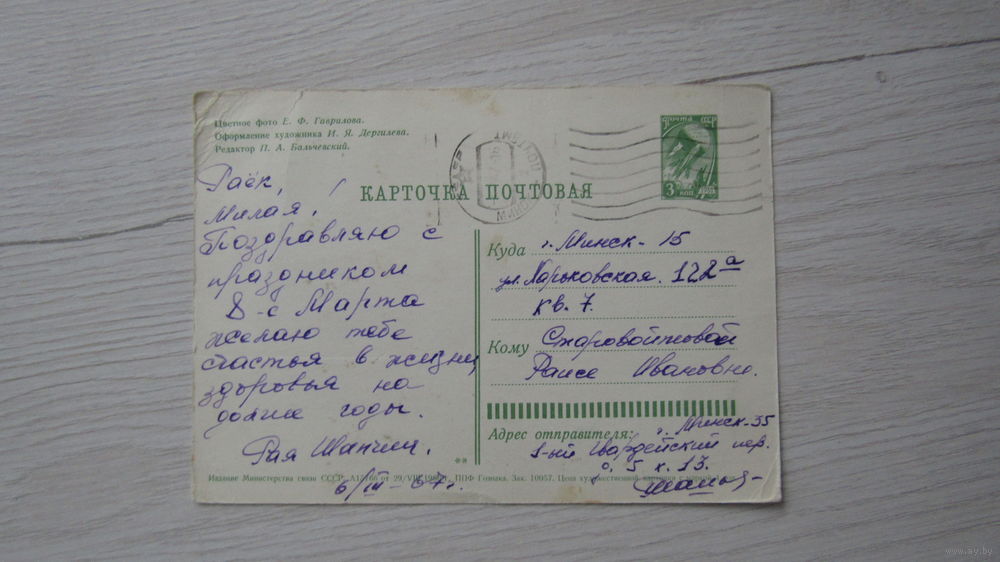 Цветное фото Е. Ф. Гаврилова.
Оформление художника И. Я. Дергилева.
Редактор П. А. Бальчевский.
ПОЧТА СССР
3 КОП
КАРТОЧКА ПОЧТОВАЯ
Раёк,
Милая,
Поздравляю с
праздником
8-е Марта
желаю тебе
счастья в жизни,
здоровья на
долгие годы.
Рая
6/III-67г.
Куда г. Минск-15
ул. Харьковская. 122а
кв. 7.
Кому Старовойтовой
Раисе Ивановне.
Адрес отправителя: г. Минск-35
1-ый Гвардейский пер.
д. 5 к. 13.
Издание Министерства связи СССР. от 29/VII ППФ Гознака. Зак. 10957. Цена художественной карточки
МИНСК ПОЧТАМТ
www.ay.by